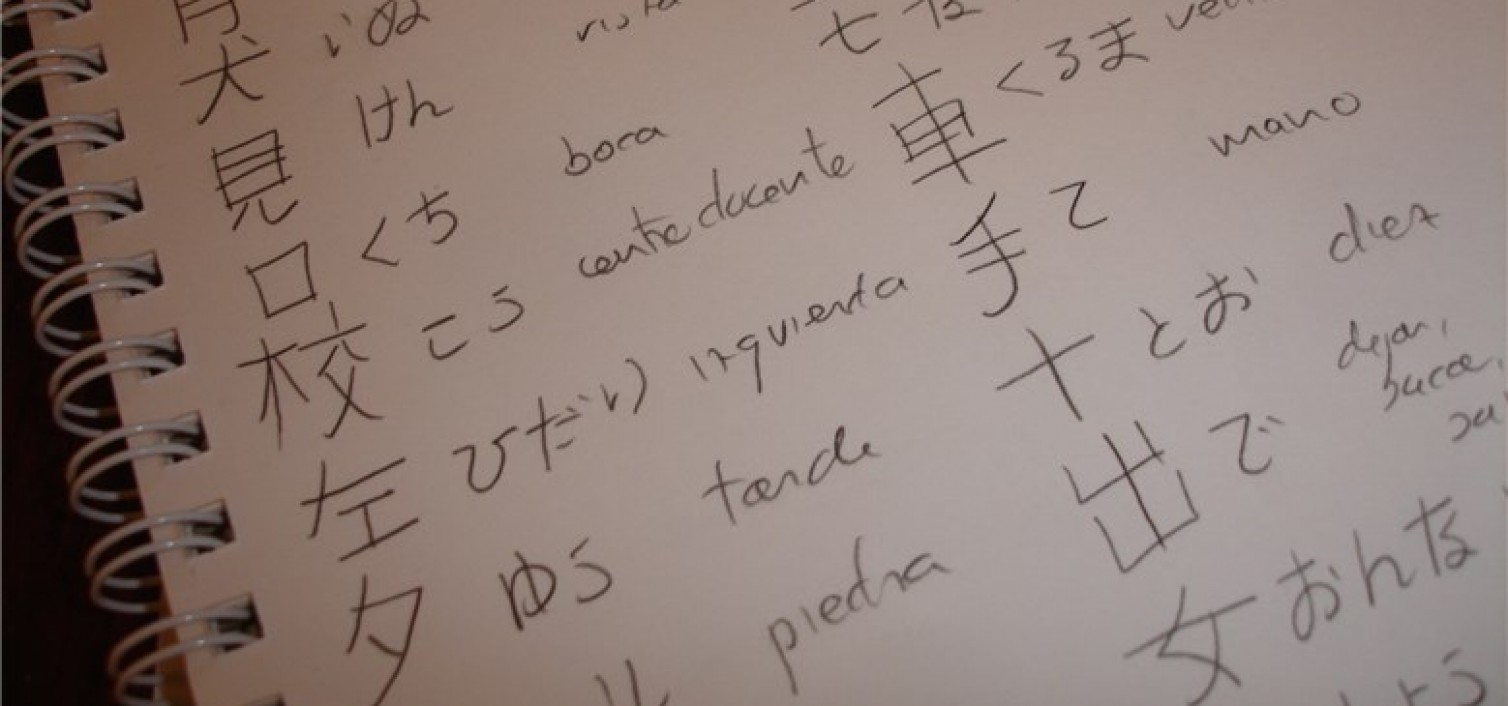 犬 いぬ
見 けん
口 くち boca
校 こう centro docente
左 ひだり izquierda
夕 ゆう tarde
piedra
七 な
車 くるま
手 て mano
十 とお diez
出 で dejar, sacar,
女 おんな